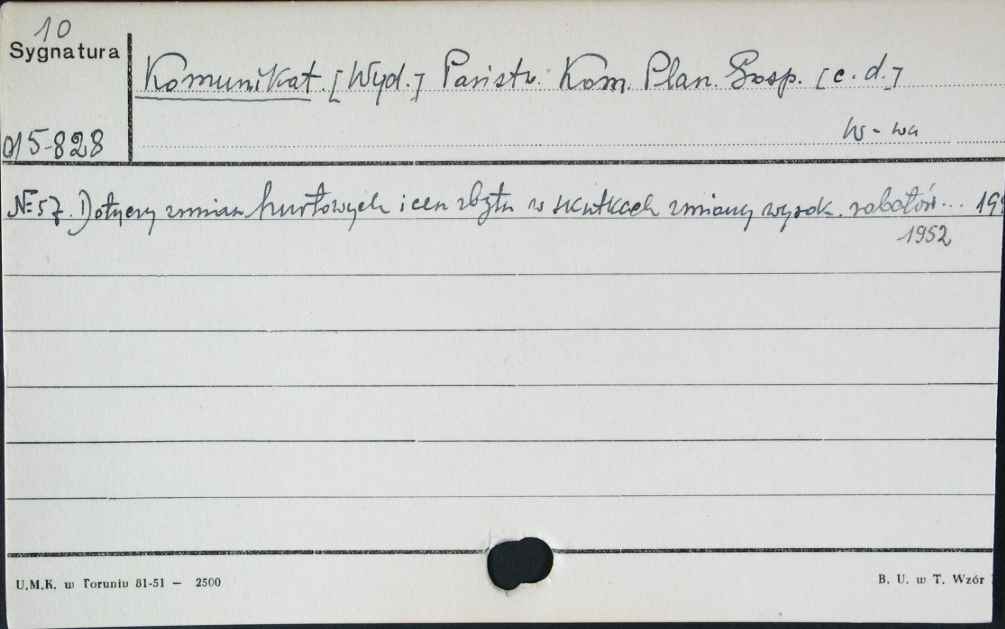 10
Sygnatura
Komunikat. [Wyd.] Państw. Kom. Plan. Gosp. [c. d.]
W-wa
015-828
№ 57. Dotyczy zmian hurtowych i cen zbytu w skutkach zmiany wysok. rabatów... 195
1952
U.M.K. w Toruniu 81-51 — 2500
B. U. w T. Wzór